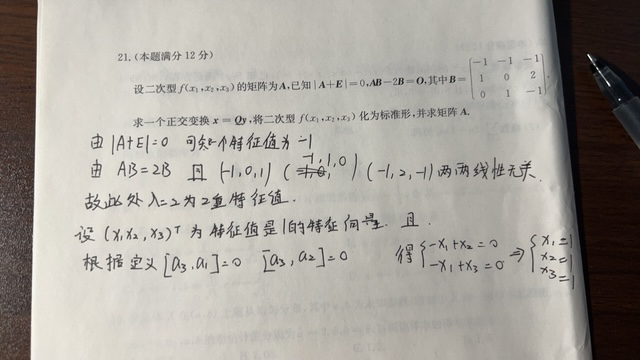 21.(本题满分12分)
设二次型f(x₁,x₂,x₃)的矩阵为A,已知|A+E|=0,AB-2B=O,其中B=[-1 -1 -1; 1 0 2; 0 1 -1].
求一个正交变换x=Qy,将二次型f(x₁,x₂,x₃)化为标准形,并求矩阵A.
由|A+E|=0 可知一个特征值为-1
由 AB=2B 且 (-1,0,1) (-1,1,0) (-1,2,-1)两两线性无关.
故此处λ=2为2重特征值.
设(x₁,x₂,x₃)ᵀ为特征值是1的特征向量. 且
根据定义[a₃,a₁]=0 [a₃,a₂]=0 得{-x₁+x₂=0 -x₁+x₃=0 ⇒{x₁=1 x₂=1 x₃=1